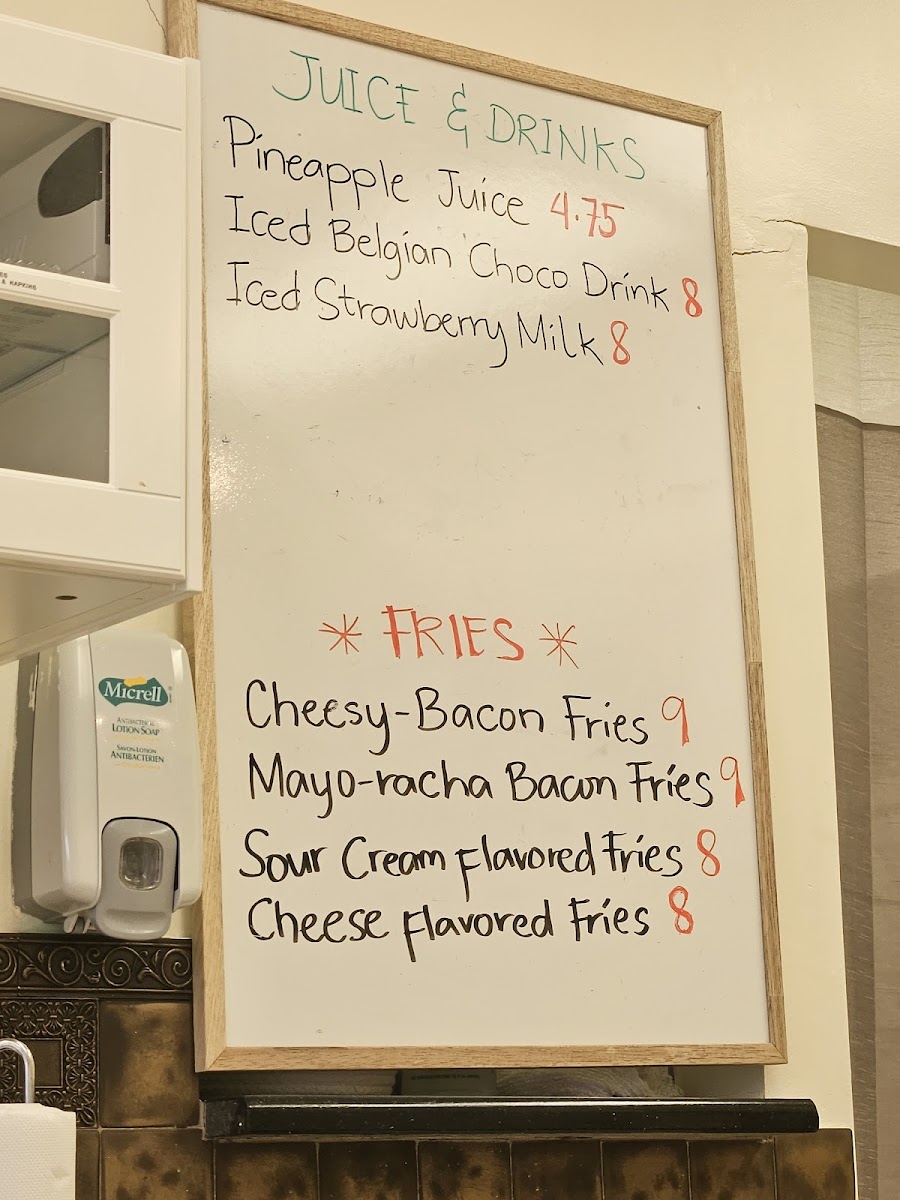 JUICE & DRINKS
Pineapple Juice 4.75
Iced Belgian Choco Drink 8
Iced Strawberry Milk 8
* FRIES *
Cheesy-Bacon Fries 9
Mayo-racha Bacon Fries 9
Sour Cream flavored Fries 8
Cheese flavored Fries 8
& NAPKINS
Micrell
ANTIBACTERIAL
LOTION SOAP
SAVON-LOTION
ANTIBACTÉRIEN